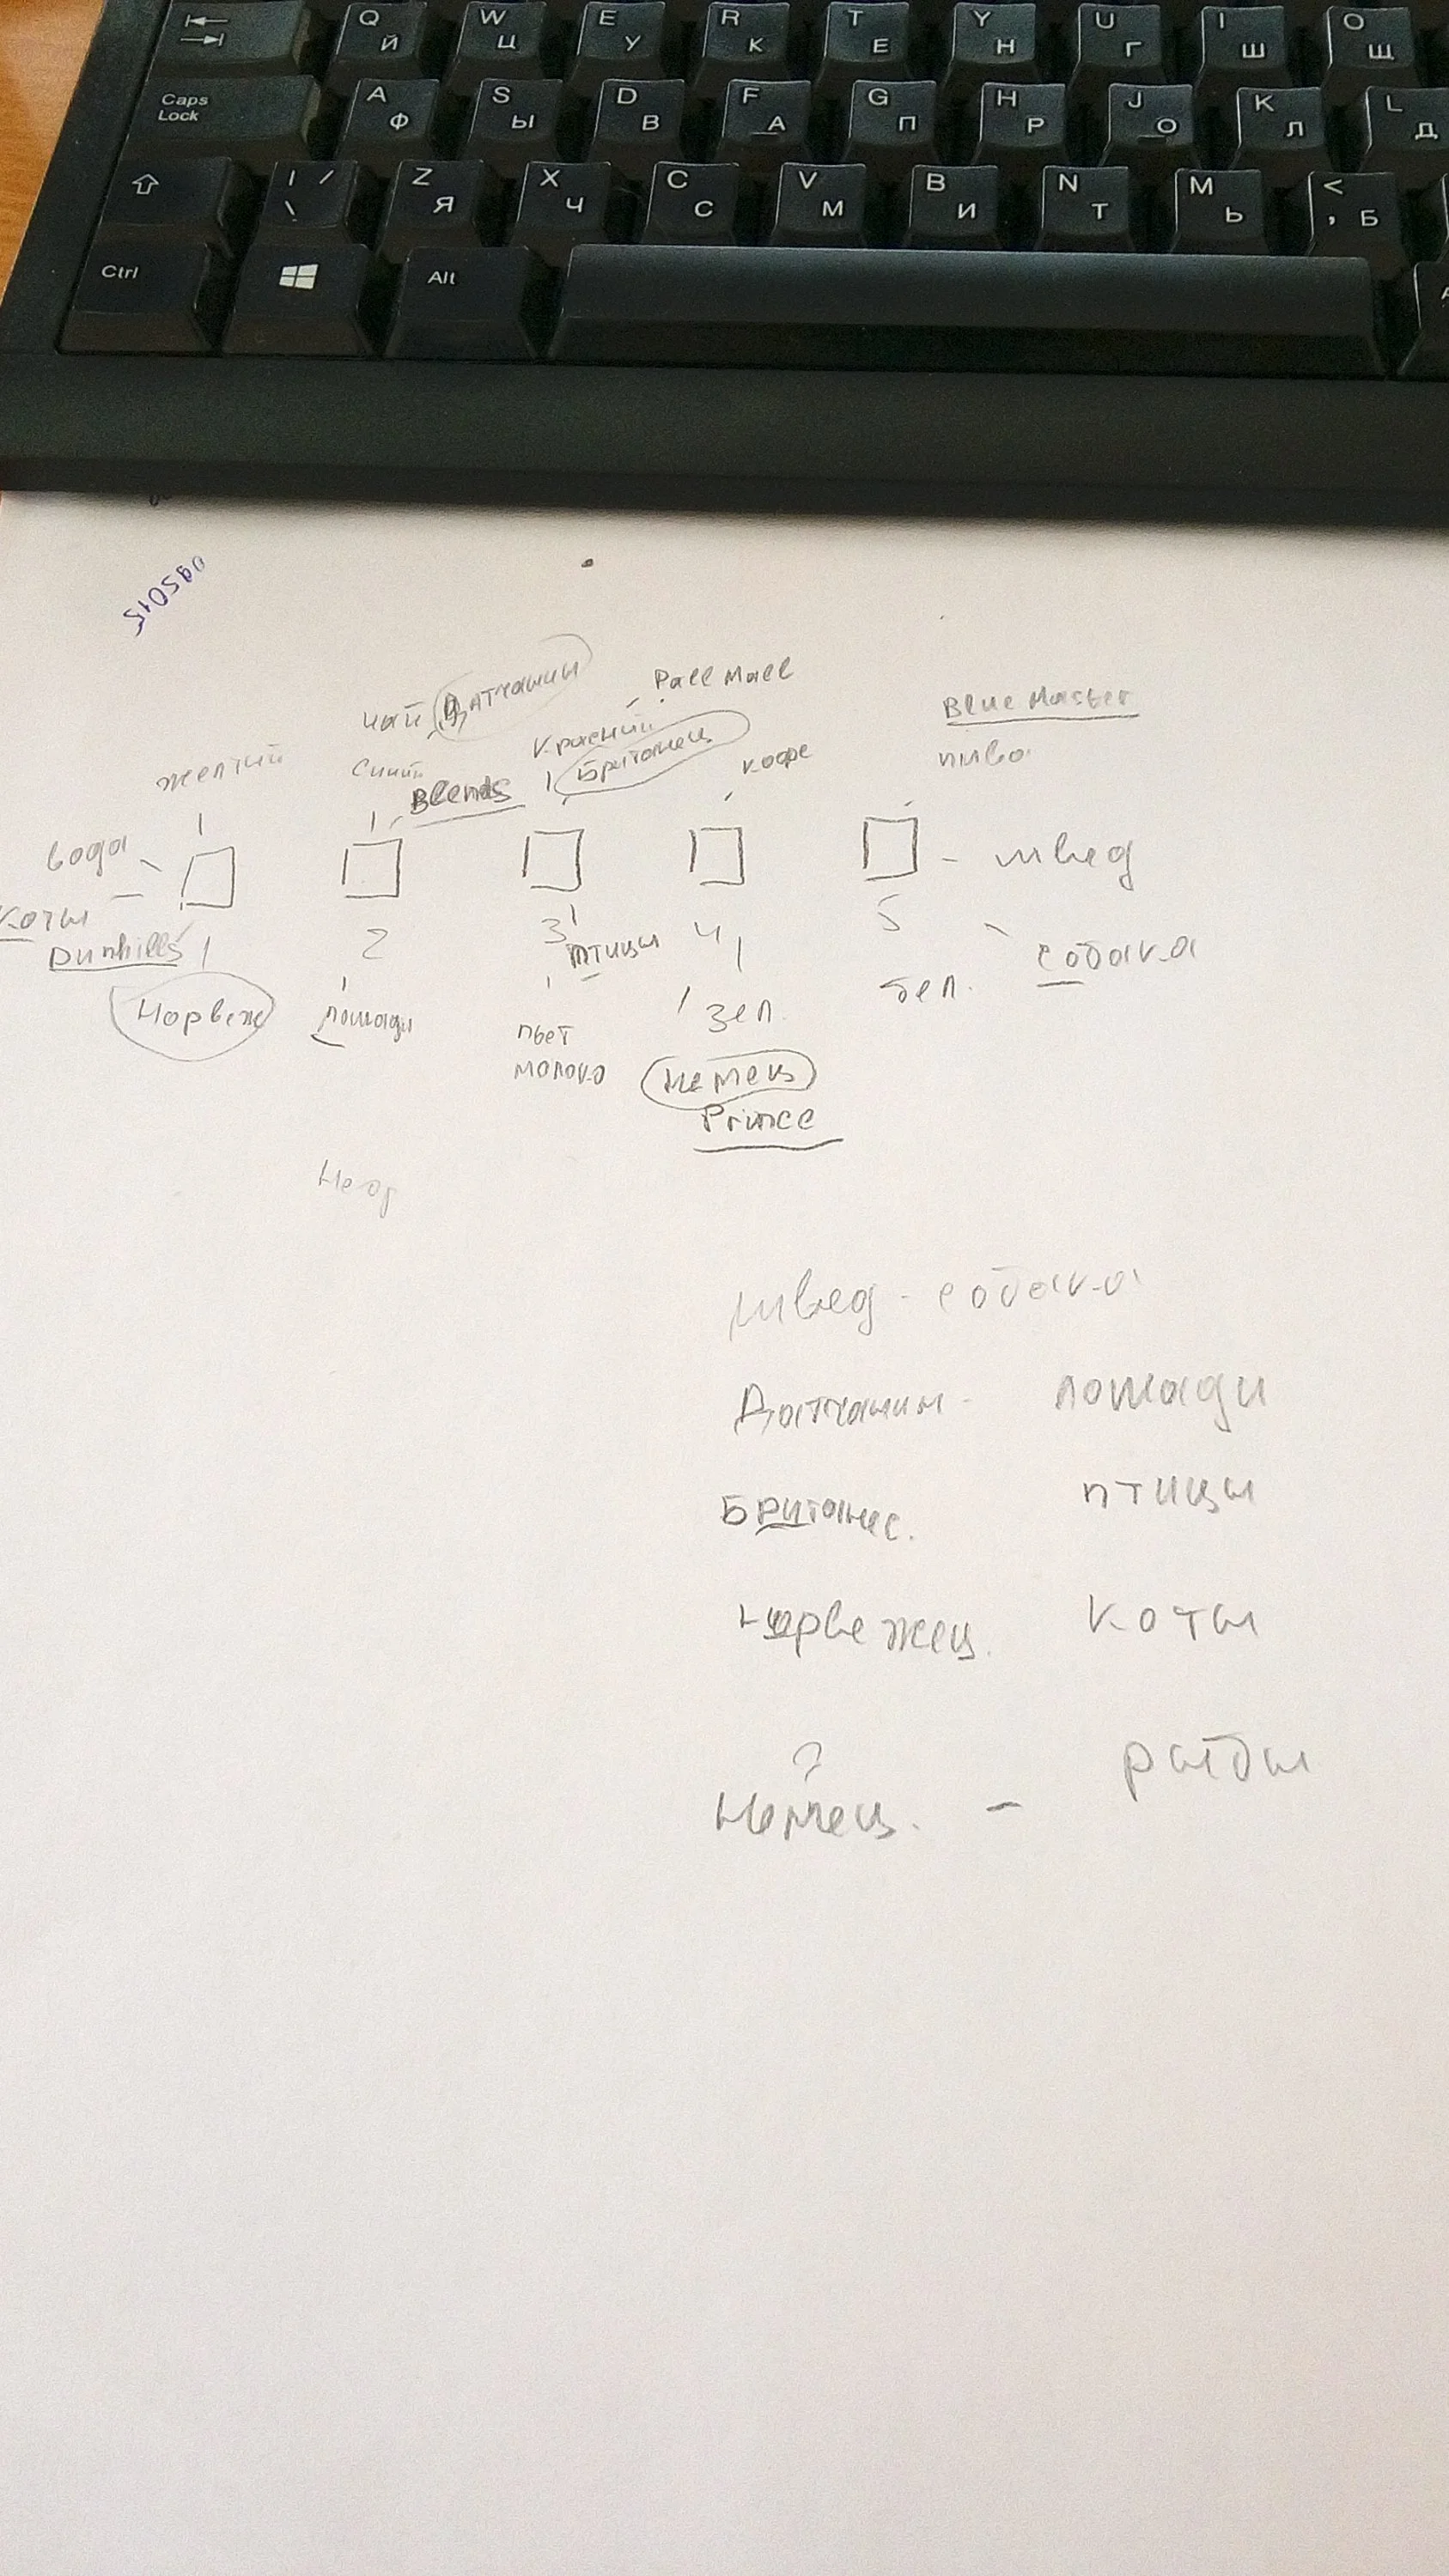 Q W E R T Y U I O
Й Ц У К Е Н Г Ш Щ
Caps Lock A S D F G H J K L
Ф Ы В А П Р О Л Д
| / \ Z X C V B N M <
Я Ч С М И Т Ь , Б
Ctrl Alt
чай Датчанин Pall Mall
Blue Master
желтый синий красный кофе пиво
Blends Британец
вода швед
коты 1 2 3 4 5
Dunhills птицы собака
Норвеж лошади зел. бел.
пьет
молоко
немец
Prince
швед - собака
Датчанин - лошади
Британец. птицы
норвежец. коты
?
немец. - рыбы